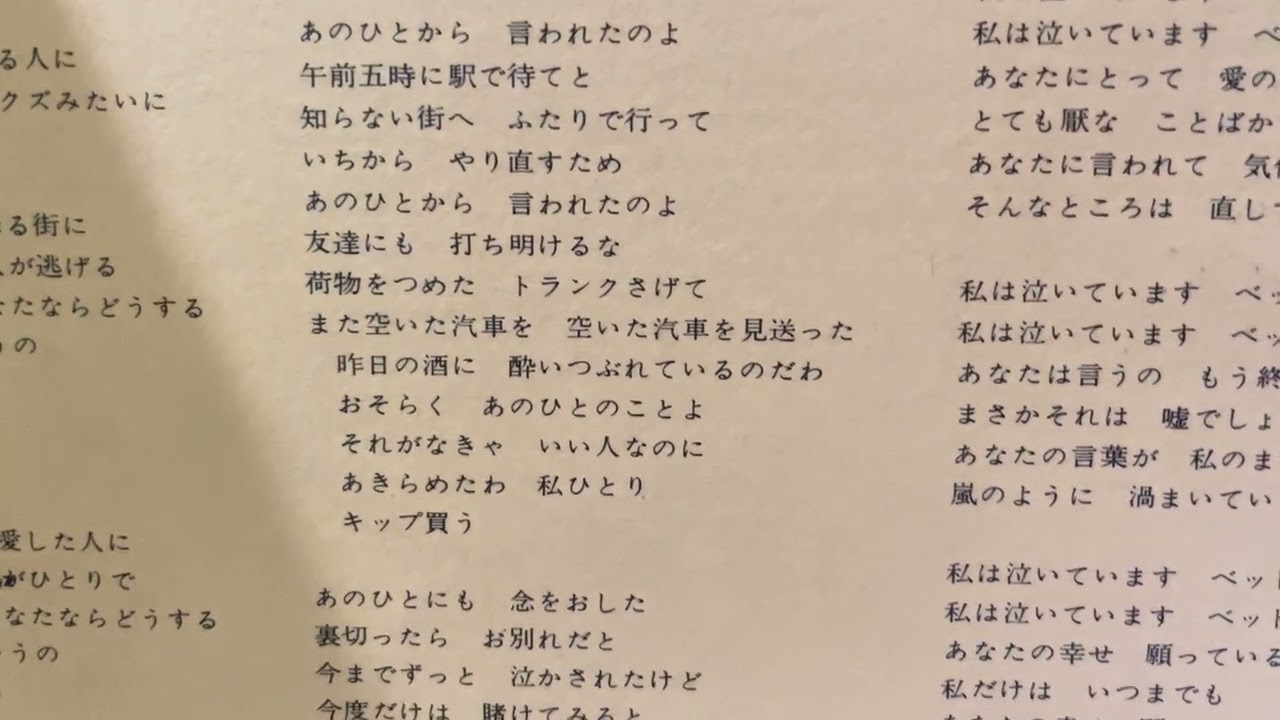 る人に
クズみたいに
る街に
が逃げる
たならどうする
の
愛した人に
がひとりで
なたならどうする
うの
あのひとから　言われたのよ
午前五時に駅で待てと
知らない街へ　ふたりで行って
いちから　やり直すため
あのひとから　言われたのよ
友達にも　打ち明けるな
荷物をつめた　トランクさげて
また空いた汽車を　空いた汽車を見送った
昨日の酒に　酔いつぶれているのだわ
おそらく　あのひとのことよ
それがなきゃ　いい人なのに
あきらめたわ　私ひとり
キップ買う
あのひとにも　念をおした
裏切ったら　お別れだと
今までずっと　泣かされたけど
今度だけは　賭けてみると
私は泣いています　ベ
あなたにとって　愛の
とても厭な　ことばか
あなたに言われて　気
そんなところは　直し
私は泣いています　ベッ
私は泣いています　ベッ
あなたは言うの　もう終
まさかそれは　嘘でしょ
あなたの言葉が　私のま
嵐のように　渦まいてい
私は泣いています　ベッド
私は泣いています　ベッド
あなたの幸せ　願っている
私だけは　いつまでも